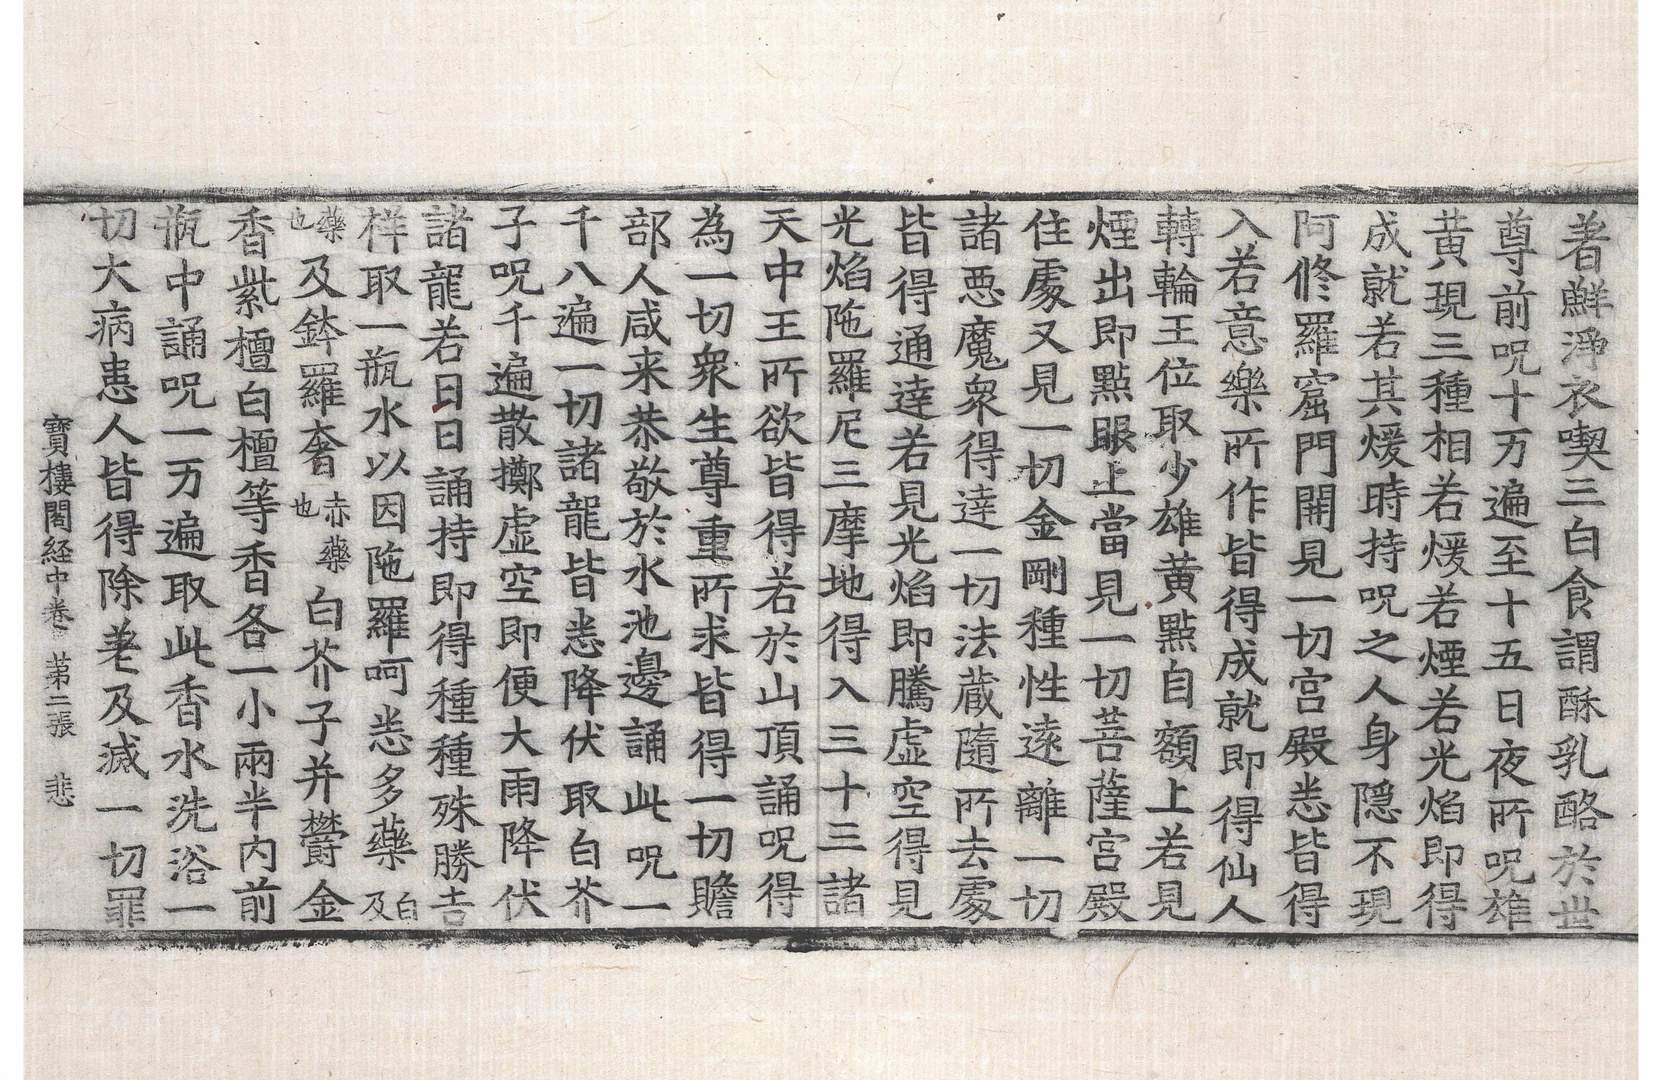 著鮮淨衣喫三白食謂酥乳酪於世
尊前呪十万遍至十五日夜所呪雄
黃現三種相若煖若煙若光焰即得
成就若其煖時持呪之人身隱不現
阿修羅窟門開見一切宮殿悉皆得
入若意樂所作皆得成就即得仙人
轉輪王位取少雄黃點自額上若見
煙出即點眼上當見一切菩薩宮殿
住處又見一切金剛種性遠離一切
諸惡魔眾得達一切法藏隨所去處
皆得通達若見光焰即騰虛空得見
光焰陁羅尼三摩地得入三十三諸
天中王所欲皆得若於山頂誦呪得
為一切眾生尊重所求皆得一切贍
部人咸来恭敬於水池邊誦此呪一
千八遍一切諸龍皆悉降伏取白芥
子呪千遍散擲虛空即便大雨降伏
諸龍若日日誦持即得種種殊勝吉
祥取一瓶水以因陁羅呵悉多藥白及
藥也及鉢羅奢赤藥也白芥子并欝金
香紫檀白檀等香各一小兩半內前
瓶中誦呪一万遍取此香水洗浴一
切大病患人皆得除差及滅一切罪
寶樓閣経中卷 第二張 悲